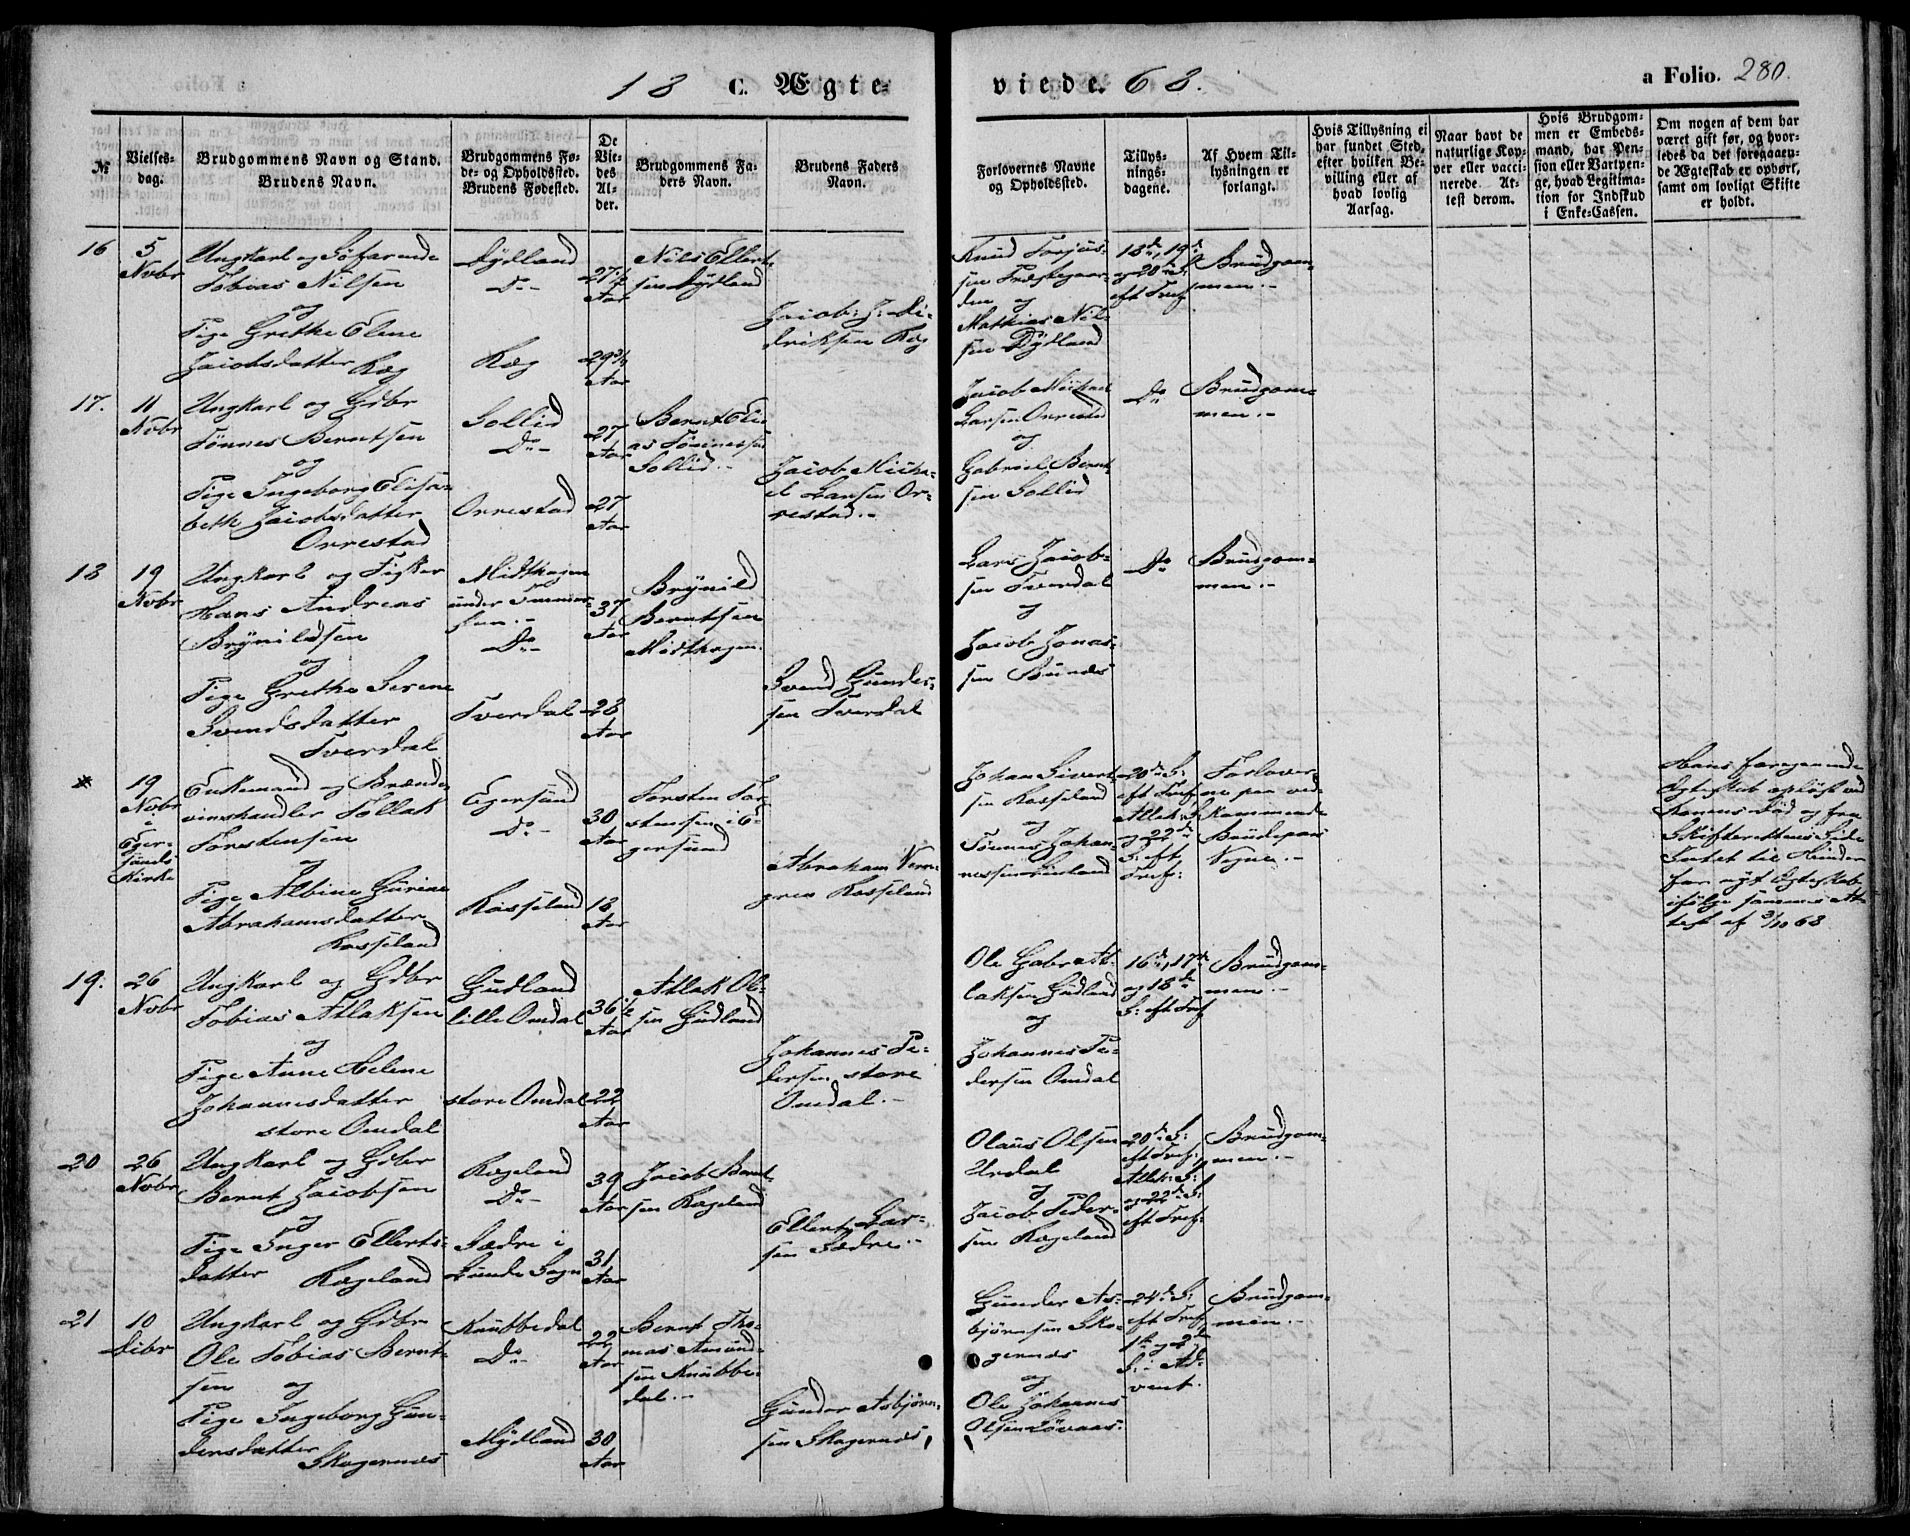 18 C. Ægte-
viede. 68.
a Folio. 280.
№
Vielses-
dag.
Brudgommens Navn og Stand.
Brudens Navn.
Brudgommens Fø-
de- og Opholdssted.
Brudens Fødested.
De
Vie-
des
Al-
der.
Brudgommens Fa-
ders Navn.
Brudens Faders
Navn.
Forlovernes Navne
og Opholdssted.
Tillys-
nings-
dagene.
Af Hvem Til-
lysningen er
forlangt.
Hvis Tillysning ei
har fundet Sted,
efter hvilken Be-
villing eller af
hvad lovlig
Aarsag.
Naar havt de
naturlige Kop-
per eller vacci-
nerede. At-
test derom.
Hvis Brudgom-
men er Embeds-
mand, har Pen-
sion eller Vartpen-
ge, hvad Legitima-
tion for Indskud
i Enke-Cassen.
Om nogen af dem har
været gift før, og hvor-
ledes da det foregaaen-
de Ægteskab er ophört,
samt om lovligt Skifte
er holdt.
16
5
Nvbr
Ungkarl og Søfarende
Tobias Nilsen
og
Pige Grethe Elene
Jacobsdatter Ræg
Dydland
Do-
Ræg
27 1/2
Aar
29 3/4
Aar
Nils Ellert-
sen Dydland
Jacob J. Di-
driksen Ræg
Knud Torjus-
sen Præstegaar-
den og
Mathias Nil-
sen Dydland
18de, 19de
og 20de S.
eft Tref
Brudgom-
men.-
17.
11
Nvbr
Ungkarl og Gdbr
Tönnes Berntsen
og
Pige Ingeborg Elisa-
beth Jacobsdatter
Orrestad
Sollid
Do-
Orrestad
27
Aar
27
Aar
Bernt Eli-
as Tönnessen
Sollid.-
Jacob Micha-
el Larsen Or-
restad.-
Jacob Michael
Larsen Orrestad
og
Gabriel Bernt-
sen Sollid
Do
Brudgom-
men.-
18
19
Nvbr
Ungkarl og Fisker
Hans Andreas
Brynildsen
og
Pige Grethe Serene
Svendsdatter
Tverdal
Midthagen
Do-
Tverdal
37
Aar
28
Aar
Brynild
Berntsen
Midthagen.
Svend Gunder-
sen Tverdal
Lars Jacob-
sen Tverdal
og
Jacob Jonas-
sen
Do
Brudgom-
men.-
19
Nvbr
i
Eger-
sunds
Kirke
Enkemand og Brænde-
vinshandler Tollak
Torstensen
og
Pige Albine Gurine
Abrahamsdatter
Rosseland
Egersund
Do-
Rosseland
30
Aar
18
Aar
Torsten Tor-
stensen i E-
gersund
Abraham
Rosseland
Johan Sivert-
sen Rosseland
og
Tönnes Johan-
nessen
20de S.
eft Tref,
Alleh. S.
og 22de
S. eft
Tref:
Forlover-
ne paa ved-
kommende
Brudepars
Vegne.-
Hans foregaaende
Ægteskab opløst ved
Konens Död og fra
Skifterettens Side
Intet til Hinder
for nyt Ægteskab
ifölge sammes At-
test af 3/10 68
19.
26
Nvbr
Ungkarl og Gdbr
Tobias Atlaksen
og
Pige Anne Helene
Johannesdatter
store Omdal
Gudland
lille Omdal
store Omdal
36 1/2
Aar
22
Aar
Atlak Ol-
sen Gudland
Johannes Pe-
dersen store
Omdal.-
Ole Gabr At-
laksen Gudland
og
Johannes Pe-
dersen Omdal
16de, 17de
og 18de
S. eft Tref
Brudgom-
men.-
20
26
Nvbr
Ungkarl og Gdbr
Bernt Jacobsen
og
Pige Inger Ellerts-
datter Rægeland
Rægeland
Do-
Sædre i
Lunde Sogn
39
Aar
31
Aar
Jacob Bernt-
sen Rægeland
Ellert Lar-
sen Sædre.-
Olaus Olsen
Urdal
og
Jacob Peder-
sen Rægeland
20de S:
eft Tref:,
Alleh: S:
og 22de S:
eft Tref:
Brudgom-
men.-
21
10
Debr
Ungkarl og Gdbr
Ole Tobias Bernt-
sen og
Pige Ingeborg Gun-
dersdatter
Skagernæs
Knubbedal
Do-
Mydland
22
Aar
30
Aar
Bernt Tho-
mas Amund-
sen Knubbe-
dal.-
Gunder Asbjörn-
sen Skagernæs,
Gunder As-
bjørnsen Ska-
gernæs
og
Ole Johannes
Olsen Løvaas.
24de S:
eft Tref,
1ste og 2den
S. i Ad-
vent.
Brudgom-
men.-